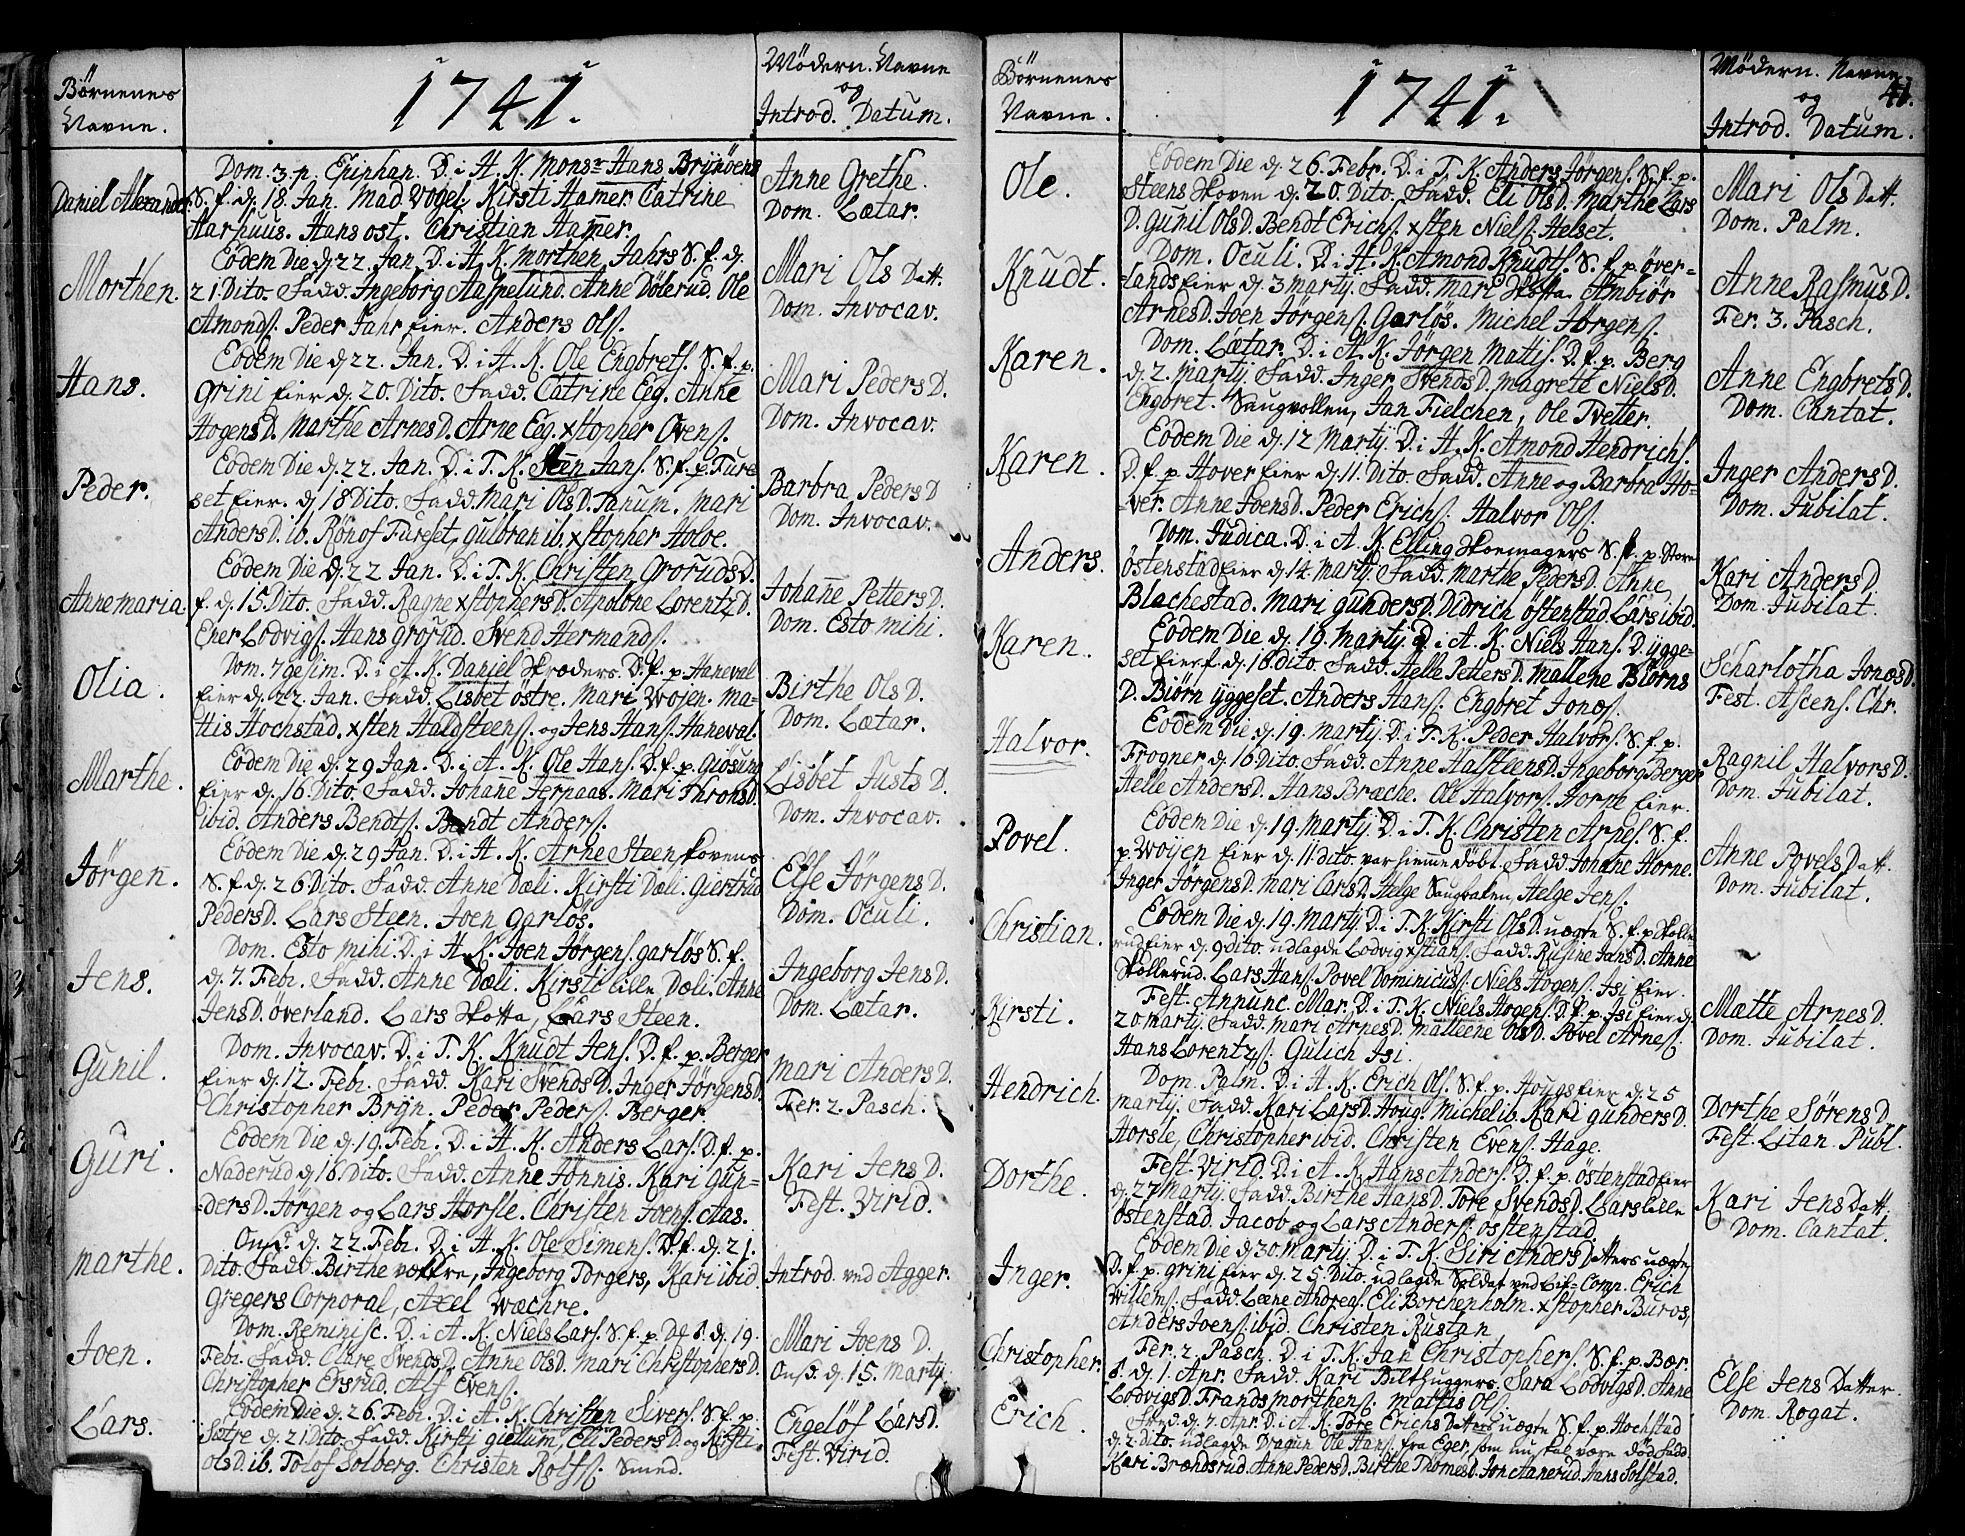 Börnenes
Navne.
1741.
Mödern. Navne
og
Introd. Datum.
Daniel Alexander
Dom. 3. p. Epiphan. D. i A. K. Monsr Hans Brijnöens
S. f. d. 18. Jan. Mad Vogel. Kirsti Hamer. Catrine
Aarhuus. Hans ost. Christian Hamer.
Anne Grethe.
Dom. Lætar.
Morthen.
Eodem Die d. 22 Jan. D. i A. K. Morthen Jahrs S. f. d.
21. Dito. Fadd. Ingeborg Aaspelund. Anne Dölerud. Ole
Amonds. Peder Jahr eier. Anders Ols.
Mari Ols Datt.
Dom. Invocav.
Hans.
Eodem Die d. 22. Jan. D. i A. K. Ole Engbrets. S. f. p.
Grini eier d. 20. Dito. Fadd. Catrine Eeg. Anne
Hogens D. Marthe Arnes D. Arne Eeg. xstopher Ovens.
Mari Peders D.
Dom. Invocav.
Peder.
Eodem Die d. 22. Jan. D. i T. K. Steen Jans. S. f. p. Fure
set eier. d. 18 Dito. Fadd. Mari Ols D. Tanum. Mari
Anders D. ib. Rön of Fureset. Gulbran ib. xstopher Holoe.
Barbra Peders D
Dom. Invocav.
Anne maria
Eodem Die d. 22 Jan. D. i T. K. Christen Groruds D.
f. d. 15. Dito. Fadd. Ragne xstophers D. Apolone Lorentz D.
Ener Lodvigs. Hans grorud. Svend Hermands.
Johanne Petters D.
Dom. Esto mihi.
Olia.
Dom. 7gesim. D. i A. K. Daniel Skræders. D. f. p. Haneval
eier d. 22. Jan. Fadd. Lisbet östre. Mari Wojen. Ma-
this Hochstad. xsten Haldsteens. og Jens Hans. Haneval.
Birthe Ols D.
Dom. Lætar.
Marthe.
Eodem Die d. 29 Jan. D. i A. K. Ole Hans. D. f. p. Giösung
eier d. 16. Dito. Fadd. Johanne Jerpaas. Mari Throns D.
ibid. Anders Bendts. Bendt Anders.
Lisbet Justs D.
Dom. Invocav.
Jörgen.
Eodem Die d. 29 Jan. D. i A. K. Arne Steenskovens
S. f. d. 26 Dito. Fadd. Anne Dæli. Kirsti Dæli. Giertrud
Peders D. Lars Steen. Joen Garlös.
Else Jörgens D.
Dom. Oculi.
Jens.
Dom. Esto mihi. D. i A. K. Joen Jörgens. garlös S. f.
d. 7. Febr. Fadd. Anne Dæli. Kirsti lille Dæli. Anne
Jens D. överland. Lars Skotta, Lars Steen.
Ingeborg Jens D.
Dom. Lætar.
Gunil.
Dom. Invocav. D. i T. K. Knudt Jens. D. f. p. Berger
eier d. 12. Febr. Fadd. Kari Svends D. Inger Jörgens D.
Christopher Brijn. Peder Peders. Berger
Mari Anders D.
Fer. 2. Pasch.
Guri.
Eodem Die d. 19. Febr. D. i A. K. Anders Lars. D. f. p.
Naderud d. 16. Dito. Fadd. Anne Honnis. Kari Gun-
-ders D. Jörgen og Lars Horsle. Christen Joens. Aas.
Kari Jens D.
Fest. Virid.
marthe.
Onsd. d. 22. Febr. D. i A. K. Ole Simens. D. f. d. 21.
Dito. Fadd. Birthe Ingeborg Torgers, Kari ibid
Gregers Corporal, Axel Wæchre.
Introd. ved Agger.
Joen.
Dom. Reminisc. D. i A. K. Niels Lars. S. f. p. d. 19.
Febr. Fadd. Svends D. Anne Ols D. Mari Christophers D.
Christopher Ersrud. Alf Evens.
Mari Joens D.
Onsd. d. 15. Martij
Lars.
Eodem Die d. 26. Febr. D. i A. K. Christen Sivers. S. f. p.
Sætre d. 21 Dito. Fadd. Kirsti giellum, Eli Peders D. og Kirsti
Ols D. ib. Tolof Solberg. Christen Rolfs. Smed.
Engelöf Lars D.
Fest. Virid.
Börnenes
Navne.
1741.
Mödern. Navne
og
Introd. Datum.
41.
Ole.
Eodem Die d. 26. Febr. D. i T. K. Anders Jörgens. S. f. p.
Steens Skoven d. 20. Dito. Fadd. Eli Ols D. Marthe Lars
D. Gunil Ols D. Bendt Erichs. xsten Niels. Helset.
Mari Ols Datt.
Dom. Palm.
Knudt.
Dom. Oculi. D. i A. K. Amond Knudts. S. f. p. över-
-lands eier d. 3 martij. Fadd. Mari Skotta. Ambiör
Arnes D. Joen Jörgens. Garlös. Michel Jörgens.
Anne Rasmus D.
Fer. 3. Pasch.
Karen.
Dom. Lætar. D. i A. K. Jörgen Matis. D. f. p. Berg
d. 2. Martij. Fadd. Inger Svends D. Magrete Niels D.
Engbret. Saugvollen, Jan Fielchen, Ole Tvetter.
Anne Engbrets D.
Dom. Cantat.
Karen.
Eodem Die d. 12 Martij. D. i A. K. Amond Hendrichs.
D. f. p. Hover eier d. 11. Dito. Fadd. Anne og Barbra Ho-
-ver. Anne Joens D. Peder Erichs. Halvor Ols.
Inger Anders D.
Dom. Jubilat.
Anders.
Dom. Judica. D. i A. K. Elling Skoemagers S. f. p. Store
östenstad eier d. 14. Martij. Fadd. Marthe Peders D. Anne
Blachestad. Mari gunders D. Didrich östenstad. Lars ibid.
Kari Anders D.
Dom. Jubilat.
Karen.
Eodem Die d. 19. Martij D. i A. K. Niels Hans. D. ijgge-
set eier f. d. 16. dito. Fadd. Helle Petters D. Mallene Biörns
D. Biörn ijggeset. Anders Hans. Engbret Jonæs.
Scharlotha Jonæs D.
Fest. Ascens. Chr.
Halvor.
Eodem Die d. 19. Martij. D. i T. K. Peder Halvors. S. f. p.
Frogner d. 16. Dito. Fadd. Anne Halsteens D. Ingeborg Berger
Helle Anders D. Hans Bræche. Ole Halvors. Horne eier.
Ragnil Halvors D.
Dom. Jubilat.
Povel.
Eodem Die d. 19. Martij D. i T. K. Christen Arnes. S. f.
p. Wojen eier d. 11. dito. var hiemmedöbt. Fadd. Johanne Horne.
Inger Jörgens D. Mari Lars D. Helge Saugvalen, Helge Jens.
Anne Povels Datt.
Dom. Jubilat.
Christian.
Eodem Die d. 19. Martij. D. i T. K. Kirsti Ols D. uægte S. f. p. Skolle
rud eier d. 9 dito. udlagde Lodvig xstians. Fadd. Rusine Jans D. Anne
Skollerud. Lars Hans. Povel Dominicus. Niels Hogens. Isi Eier.
Kirsti.
Fest. Annunc. Mar. D. i T. K. Niels Hogens. D. f. p. Isi Eier d.
20 martij. Fadd. Mari Arnes D. Malleene Ols D. Povel Arnes.
Hans Lorentzs. Gulich Isi.
Mætte Arnes D.
Dom. Jubilat.
Hendrich.
Dom. Palm. D. i A. K. Erich Ols. S. f. p. Hougs eier d. 25
martij. Fadd. Kari Lars D. Houg. Michel ib. Kari gunders D.
Horsle, Christopher ibid. Christen Evens. Hage.
Dorthe Sörens D.
Fest. Litan. Publ.
Dorthe.
Fest. Virid. D. i A. K. Hans Anders. D. f. p. östenstad eier
d. 27 Martij. Fadd. Birthe Hans D. Tore Svends D. Lars lille
östenstad. Jacob og Lars Anders. ostenstad.
Kari Jens Datt.
Dom. Cantat.
Inger.
Eodem Die d. 30. Martij D. i T. K. Siri Anders Datters uægte
D. f. p. grini eier d. 25. Dito. udlagde Soldat ved Lif-Comp. Erich
Willems. Fadd. Leene Andreas. Eli Borchenholm. xstopher Buros,
Anders Joens. ibid. Christen Rustan
Christopher
Fer. 2. Pasch. D. i T. K. Jan Christophers. S. f. p. Bær.
d. 1. Apr. Fadd. Kari Bilthuggers. Sara Lodvigs D. Anne
Lodvigs D. Frands morthens. Mattis Ols.
Else Jens Datter.
Dom. Rogat.
Erich.
d. 7. Apr. D. i A. K. Tore Erichs Datters uægte S. f. p. Hochstad
d. 2. Dito. udlagde Dragun Ole Hans. fra Eger, som nu skal være död. Fadd.
Kari Brændsrud. Anne Peders D. Birthe Thomes D. Jon Aanerud. Jans Solstad.